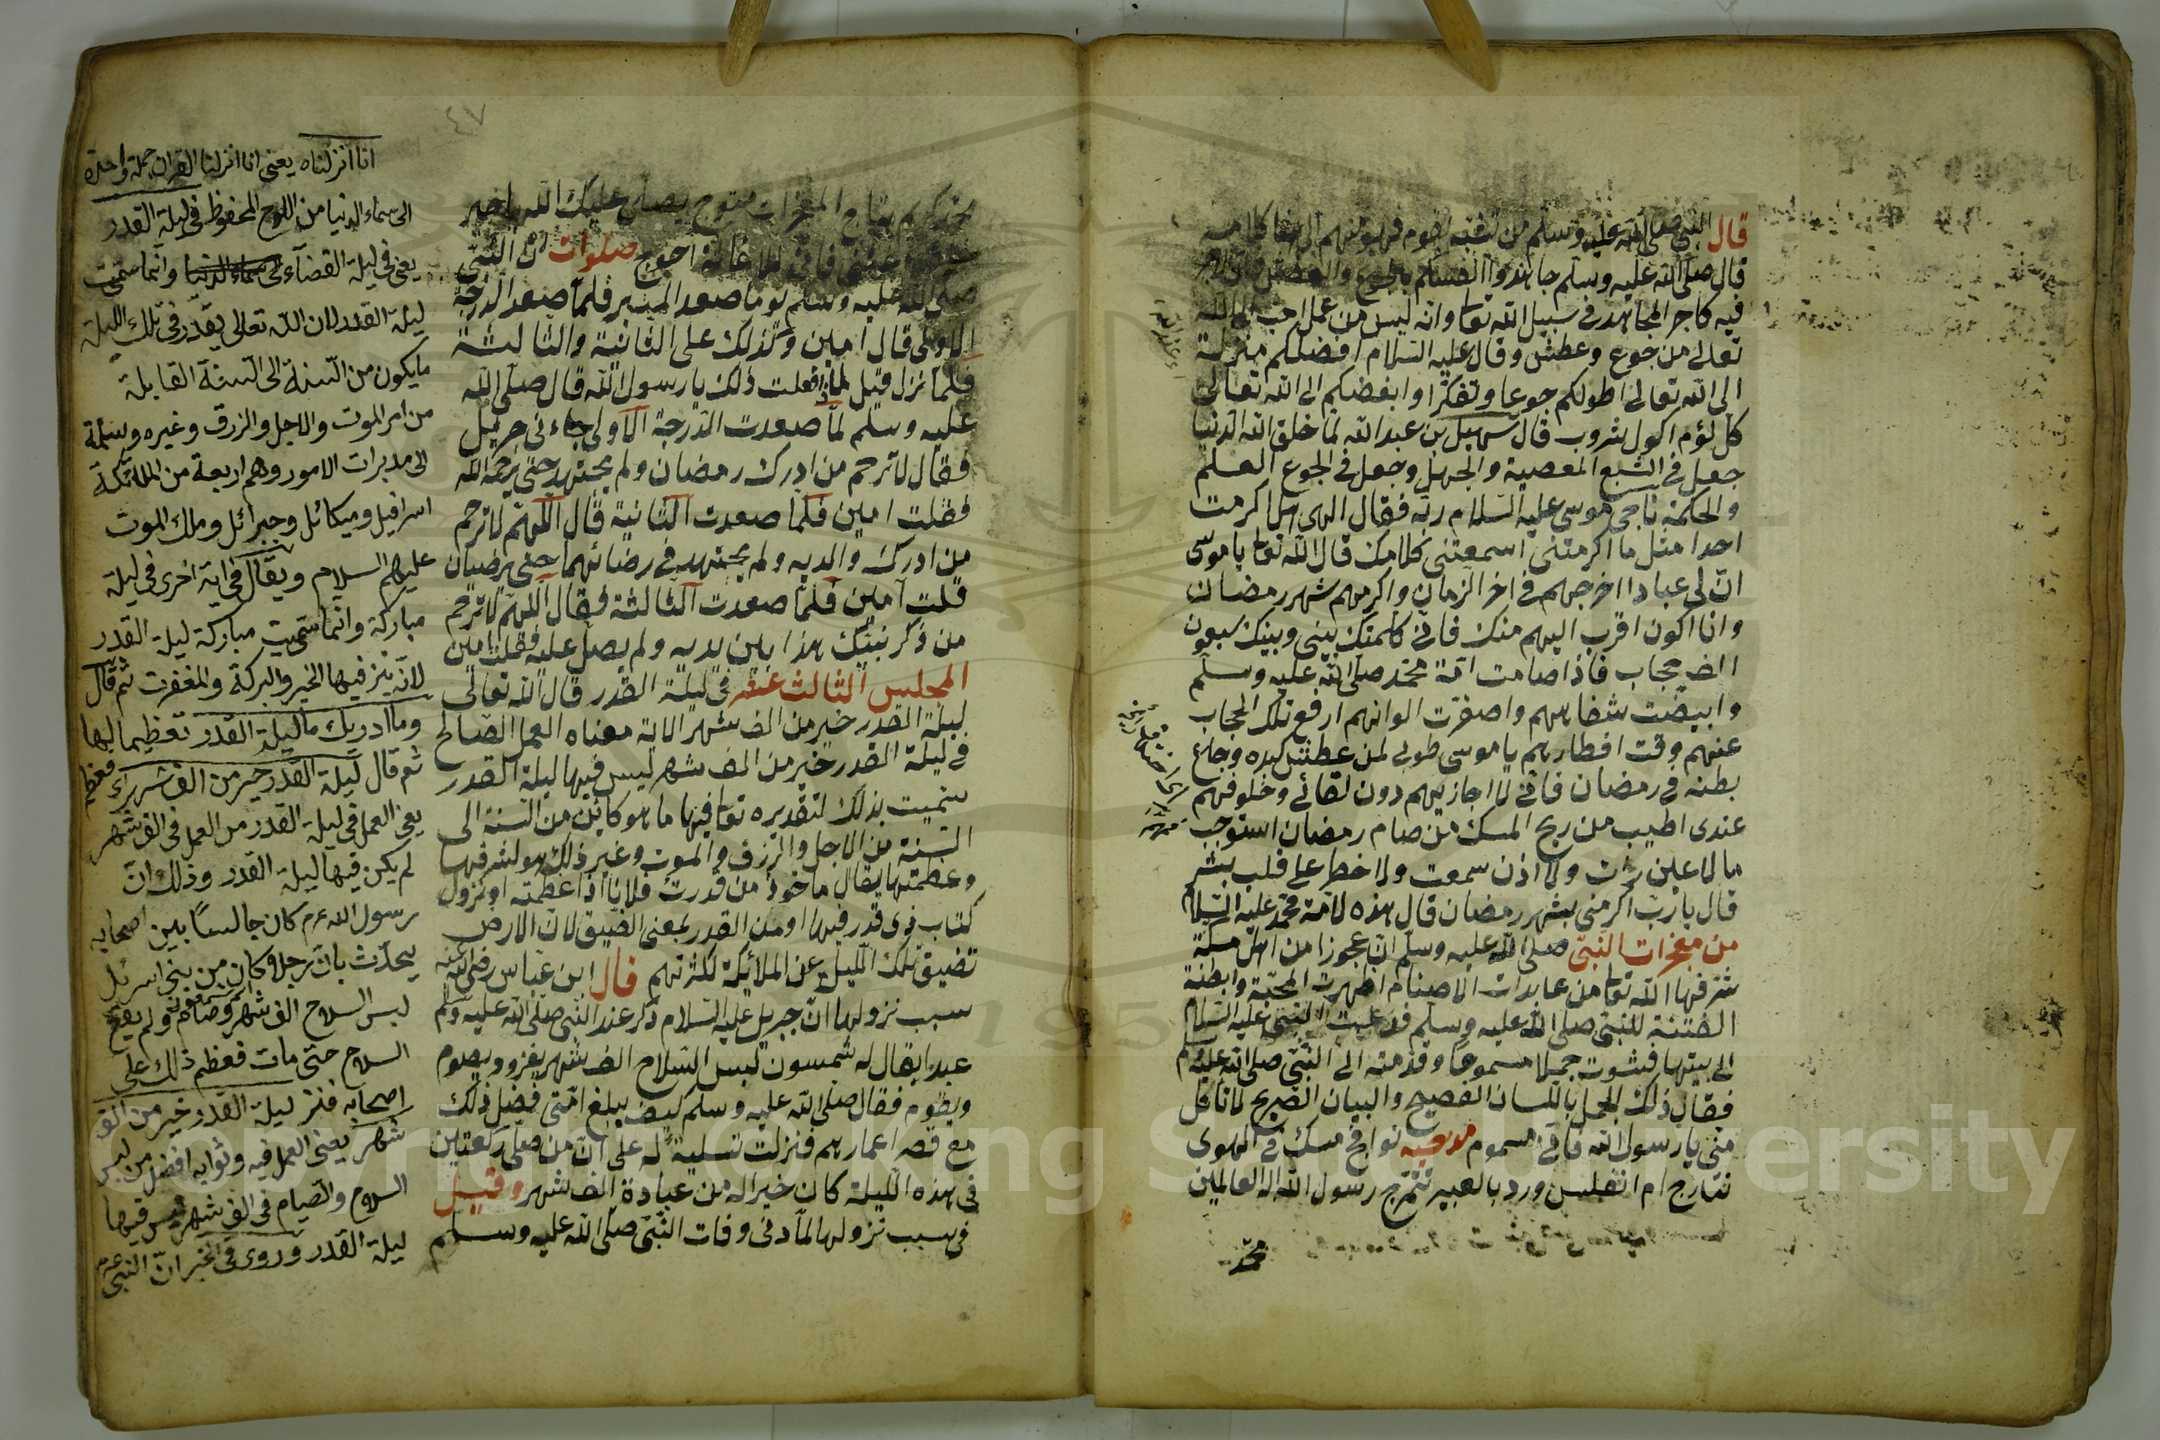 قال النبي صلى الله عليه وسلم من تشبه بقوم فهو منهم
قال صلى الله عليه وسلم جاهدوا انفسكم بالجوع والعطش فان الاجر
فيه كاجر المجاهد في سبيل الله تعا وانه ليس من عمل احب الى الله
تعالى من جوع وعطش وقال عليه السلام افضلكم منزلة
الى الله تعالى اطولكم جوعا وتفكرا وابغضكم الى الله تعالى
كل نؤم اكول شروب قال سهيل بن عبد الله لما خلق الله الدنيا
جعل في الشبع المعصية والجهل وجعل في الجوع العلم
والحكمة ناجى موسى عليه السلام ربه فقال الهى هل اكرمت
احدا مثل ما اكرمتنى اسمعتنى كلامك قال الله تعا يا موسى
ان لى عبادا اخرجهم في اخر الزمان واكرمهم شهر رمضان
وانا اكون اقرب اليهم منك فانى كلمتك بينى وبينك سبعون
الف حجاب فاذا صامت امة محمد صلى الله عليه وسلم
وابيضت شفاههم واصفرت الوانهم ارفع تلك الحجاب
عنهم وقت افطارهم يا موسى طوبى لمن عطش كبده وجاع
بطنه في رمضان فانى لا اجازيهم دون لقائى وخلوف فهم
عندى اطيب من ريح المسك من صام رمضان استوجب
مالا عين رات ولا اذن سمعت ولا خطر على قلب بشر
قال يا رب اكرمنى بشهر رمضان قال هذه لامة محمد عليه السلام
من معجزات النبي صلى الله عليه وسلم ان عجوزا من اهل مكة
شرفها الله تعا من عابدات الاصنام اظهرت المحبة وابطنة
الفتنة للنبى صلى الله عليه وسلم فدعيت النبي عليه السلام
الى بيتها فشوت جملا مسموما وقدمته الى النبي صلى الله عليه وسلم
فقال ذلك الجمل باللسان الفصيح والبيان الصريح لا تاكل
منى يا رسول الله فانى مسموم نوافح مسك في الهوى
تتارج ام انفليس ورد بالعبير تتمزج رسول اله العالمين
محمد
محمد كريم بتاج المعجزات متوج يصلى عليك الله يا خير
احوج صلوات ان النبي
صلى الله عليه وسلم يوما صعد المنبر فلما صعد الدرجة
الاولى قال امين وكذلك على الثانية والثالثة
فلما نزل قيل لماذا فعلت ذلك يا رسول الله قال صلى الله
عليه وسلم لما صعدت الدرجة الاولى جاءنى جبريل
فقال لا ترحم من ادرك رمضان ولم يجتهد حتى يرحمه الله
فقلت امين فلما صعدت الثانية قال اللهم لا ترحم
من ادرك والديه ولم يجتهد في رضائهما حتى يرضيان
قلت آمين فلما صعدت الثالثة فقال اللهم لا ترحم
من ذكر نبيك هذا بين يديه ولم يصل عليه فقلت امين
المجلس الثالث عشر في ليلة القدر قال الله تعالى
ليلة القدر خير من الف شهر الاية معناه العمل الصالح
في ليلة القدر خير من الف شهر ليس فيها ليلة القدر
سميت بذلك لتقديره تعا فيها ما هو كائن من السنة الى
السنة من الاجل والرزق والموت وغير ذلك هو لشرفها
وعظمتها يقال ماخوذ من قدرت فلانا اذا عظمته او نزول
كتاب ذى قدر فيها او من القدر بمعنى الضيق لان الارض
تضيق تلك الليل عن الملائكة لكثرتهم قال ابن عباس رضى الله عنه
سبب نزولها ان جبريل عليه السلام ذكر عند النبي صلى الله عليه وسلم
عبدا يقال له شمسون لبس السلاح الف شهر يغزو ويصوم
ويقوم فقال صلى الله عليه وسلم كيف يبلغ امتى فضل ذلك
مع قصر اعمارهم فنزلت تسلية له على ان من صلى ركعتين
في هذه الليلة كان خيرا له من عبادة الف شهر وقيل
في سبب نزولها لما دنى وفات النبي صلى الله عليه وسلم
انا انزلناه يعنى انا انزلنا القران جملة واحدة
الى سماء الدنيا من اللوح المحفوظ في ليلة القدر
يعنى في ليلة القضاء الى سماء الدنيا وانما سميت
ليلة القدر لان الله تعالى يقدر في تلك الليلة
ما يكون من السنة الى السنة القابلة
من امر الموت والاجل والرزق وغيره وسلمة
الى مدبرات الامور وهم اربعة من الملائكة
اسرافيل وميكائل وجبرائل وملك الموت
عليهم السلام ويقال في اية اخرى في ليلة
مباركة وانما سميت مباركة ليلة القدر
لانه ينز فيها الخير والبركة والمغفرت ثم قال
وما ادريك ما ليلة القدر تعظيما لها
ثم قال ليلة القدر خير من الف شهر
يعنى العمل في ليلة القدر من العمل في الف شهر
لم يكن فيها ليلة القدر وذلك ان
رسول الله عم كان جالسا بين اصحابه
يحدث بان رجلا وكان من بنى اسرئل
لبس السلاح الف شهر ولم يضع
السلاح حتى مات فعظم ذلك على
اصحابه فنز ليلة القدر خير من الف
شهر يعنى العمل فيه وثوابه افضل من لبس
السلاح والصيام في الف شهر ليس فيها
ليلة القدر وروى في الخبر ان النبي عم
٤٧